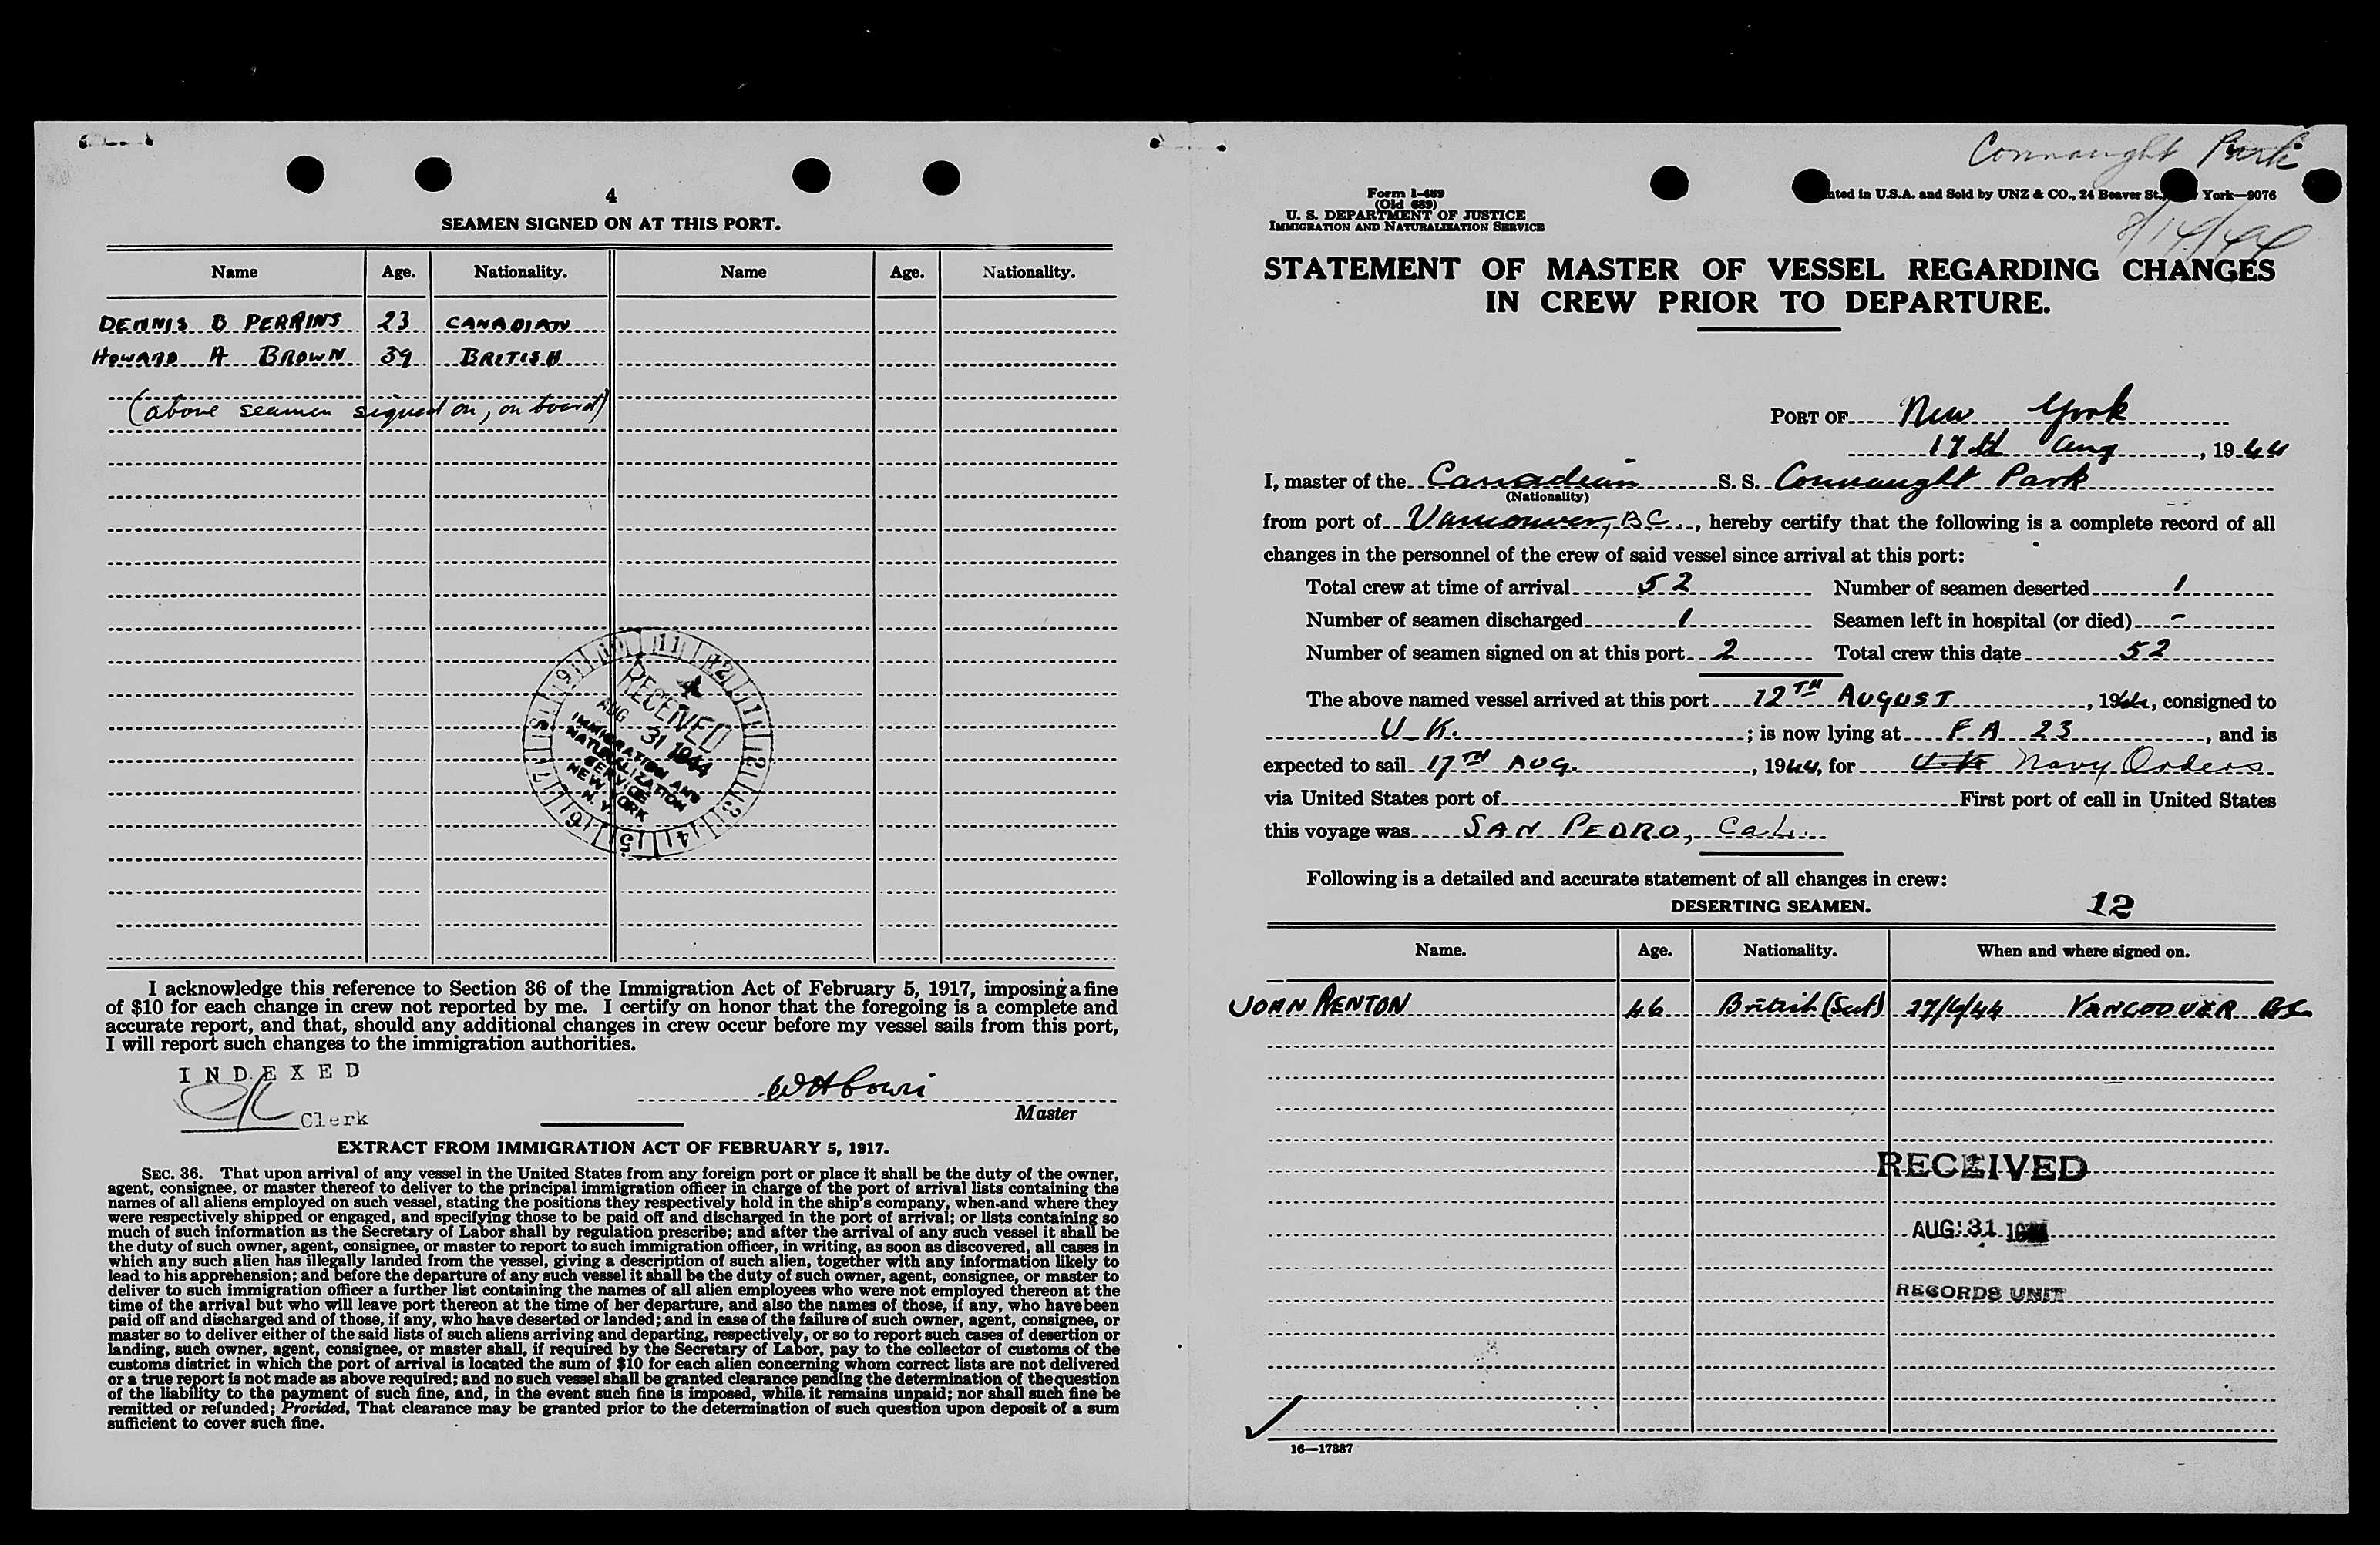 4
SEAMEN SIGNED ON AT THIS PORT.
Name Age. Nationality. Name Age. Nationality.
DENNIS B PERRINS 23 CANADIAN
HOWARD A BROWN 39 BRITISH
(above seamen signed on, on board)
9 10 11 12 1 2 3 4 5 6 7 8
RECEIVED
AUG 31 1944
IMMIGRATION AND
NATURALIZATION
SERVICE
NEW YORK
N. Y.
I acknowledge this reference to Section 36 of the Immigration Act of February 5, 1917, imposing a fine
of $10 for each change in crew not reported by me. I certify on honor that the foregoing is a complete and
accurate report, and that, should any additional changes in crew occur before my vessel sails from this port,
I will report such changes to the immigration authorities.
INDEXED
Clerk
Master
EXTRACT FROM IMMIGRATION ACT OF FEBRUARY 5, 1917.
SEC. 36. That upon arrival of any vessel in the United States from any foreign port or place it shall be the duty of the owner,
agent, consignee, or master thereof to deliver to the principal immigration officer in charge of the port of arrival lists containing the
names of all aliens employed on such vessel, stating the positions they respectively hold in the ship's company, when and where they
were respectively shipped or engaged, and specifying those to be paid off and discharged in the port of arrival; or lists containing so
much of such information as the Secretary of Labor shall by regulation prescribe; and after the arrival of any such vessel it shall be
the duty of such owner, agent, consignee, or master to report to such immigration officer, in writing, as soon as discovered, all cases in
which any such alien has illegally landed from the vessel, giving a description of such alien, together with any information likely to
lead to his apprehension; and before the departure of any such vessel it shall be the duty of such owner, agent, consignee, or master to
deliver to such immigration officer a further list containing the names of all alien employees who were not employed thereon at the
time of the arrival but who will leave port thereon at the time of her departure, and also the names of those, if any, who have been
paid off and discharged and of those, if any, who have deserted or landed; and in case of the failure of such owner, agent, consignee, or
master so to deliver either of the said lists of such aliens arriving and departing, respectively, or so to report such cases of desertion or
landing, such owner, agent, consignee, or master shall, if required by the Secretary of Labor, pay to the collector of customs of the
customs district in which the port of arrival is located the sum of $10 for each alien concerning whom correct lists are not delivered
or a true report is not made as above required; and no such vessel shall be granted clearance pending the determination of the question
of the liability to the payment of such fine, and, in the event such fine is imposed, while it remains unpaid; nor shall such fine be
remitted or refunded; Provided, That clearance may be granted prior to the determination of such question upon deposit of a sum
sufficient to cover such fine.
Connaught Park
Form I-489
(Old 689)
U. S. DEPARTMENT OF JUSTICE
IMMIGRATION AND NATURALIZATION SERVICE
nted in U.S.A. and Sold by UNZ & CO., 24 Beaver St., York—9076
8/14/44
STATEMENT OF MASTER OF VESSEL REGARDING CHANGES
IN CREW PRIOR TO DEPARTURE.
PORT OF New York
17th Aug, 1944
I, master of the Canadian S. S. Connaught Park
(Nationality)
from port of Vancouver, BC, hereby certify that the following is a complete record of all
changes in the personnel of the crew of said vessel since arrival at this port:
Total crew at time of arrival 52 Number of seamen deserted 1
Number of seamen discharged 1 Seamen left in hospital (or died) -
Number of seamen signed on at this port 2 Total crew this date 52
The above named vessel arrived at this port 12TH AUGUST, 1944, consigned to
U.K.; is now lying at F A 23, and is
expected to sail 17TH AUG., 1944, for U.K. Navy Orders
via United States port of First port of call in United States
this voyage was SAN PEDRO, Cal.
Following is a detailed and accurate statement of all changes in crew:
DESERTING SEAMEN. 12
Name. Age. Nationality. When and where signed on.
JOHN RENTON 46 British (Scot) 27/6/44 VANCOUVER BC
RECEIVED
AUG 31
RECORDS UNIT
16—17887